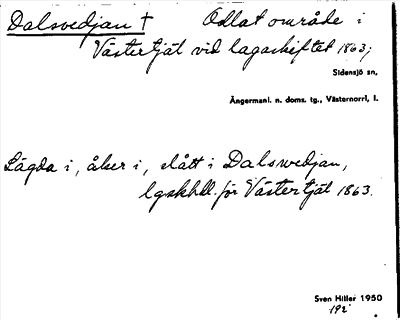 Dalsvedjan † Odlat område i
Västertjät vid lagaskiftet 1863;
Sidensjö sn,
Ångermanl. n. doms. tg., Västernorrl, l.
Lägda i, åker i, slått i Dalswedjan,
lgskhdl. för Västertjät 1863.
Sven Hiller 1950
192